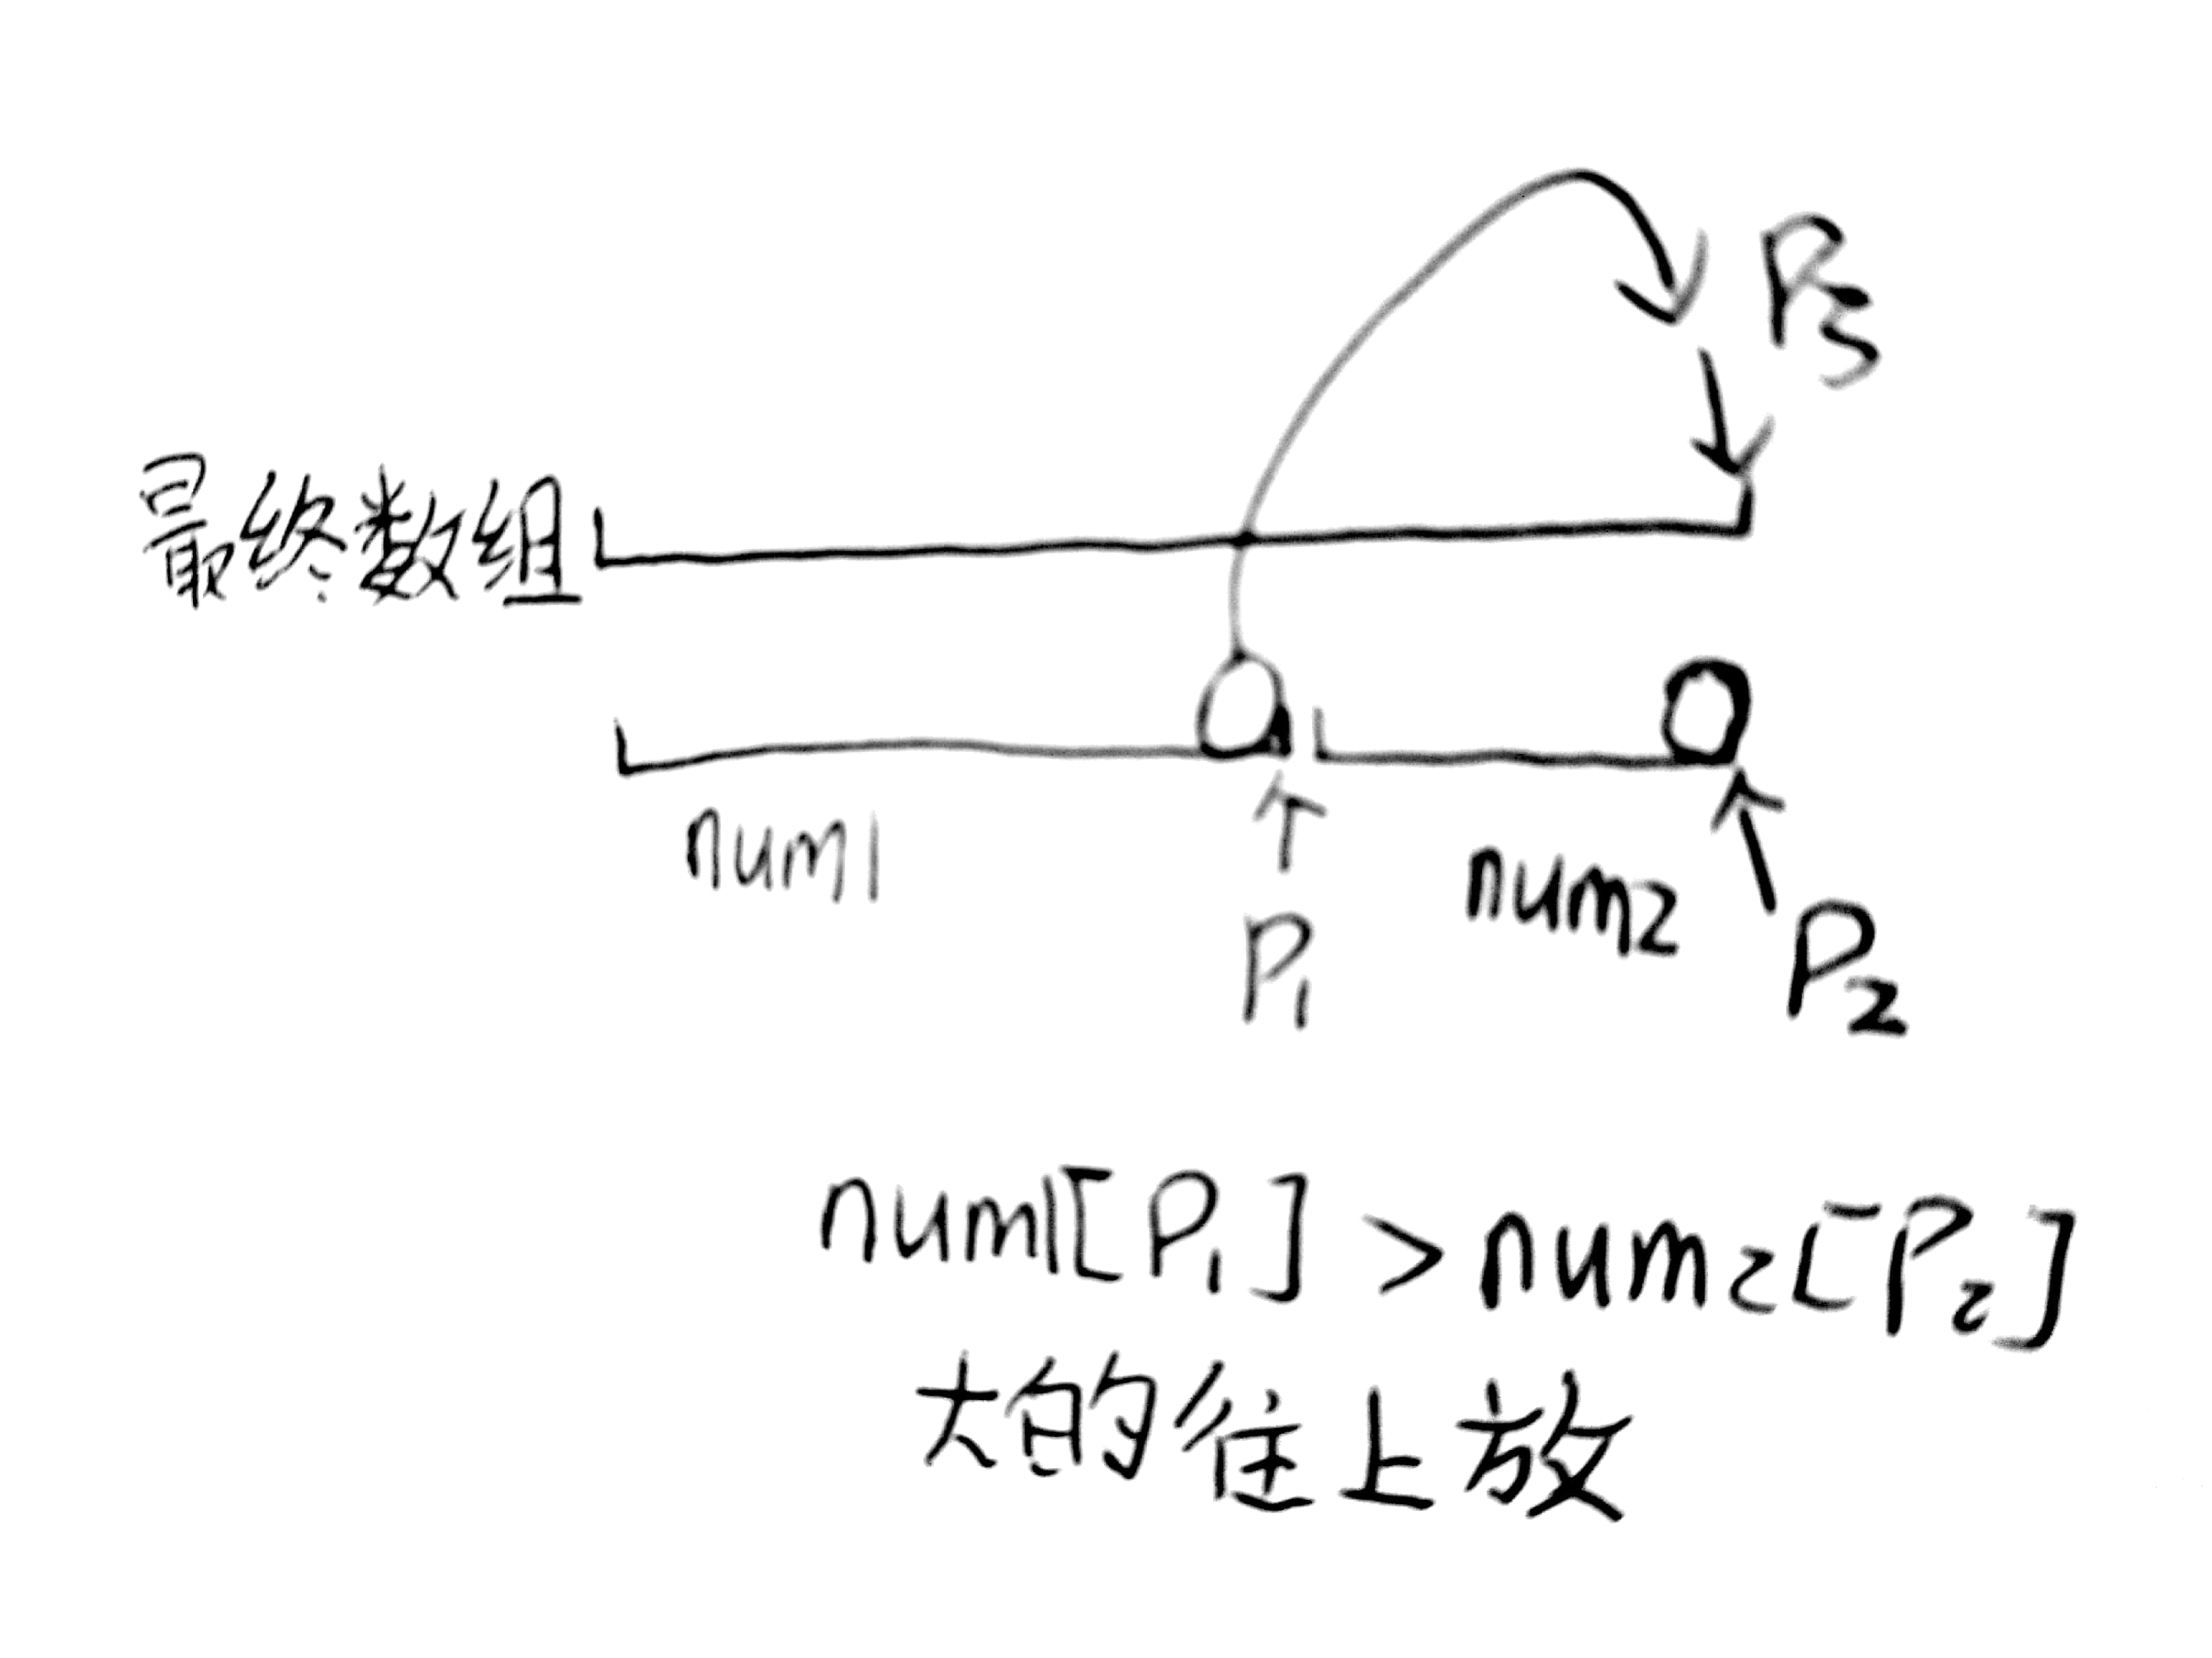 P3
最终数组
num1
num2
P1
P2
num1[P1]>num2[P2]
大的往上放